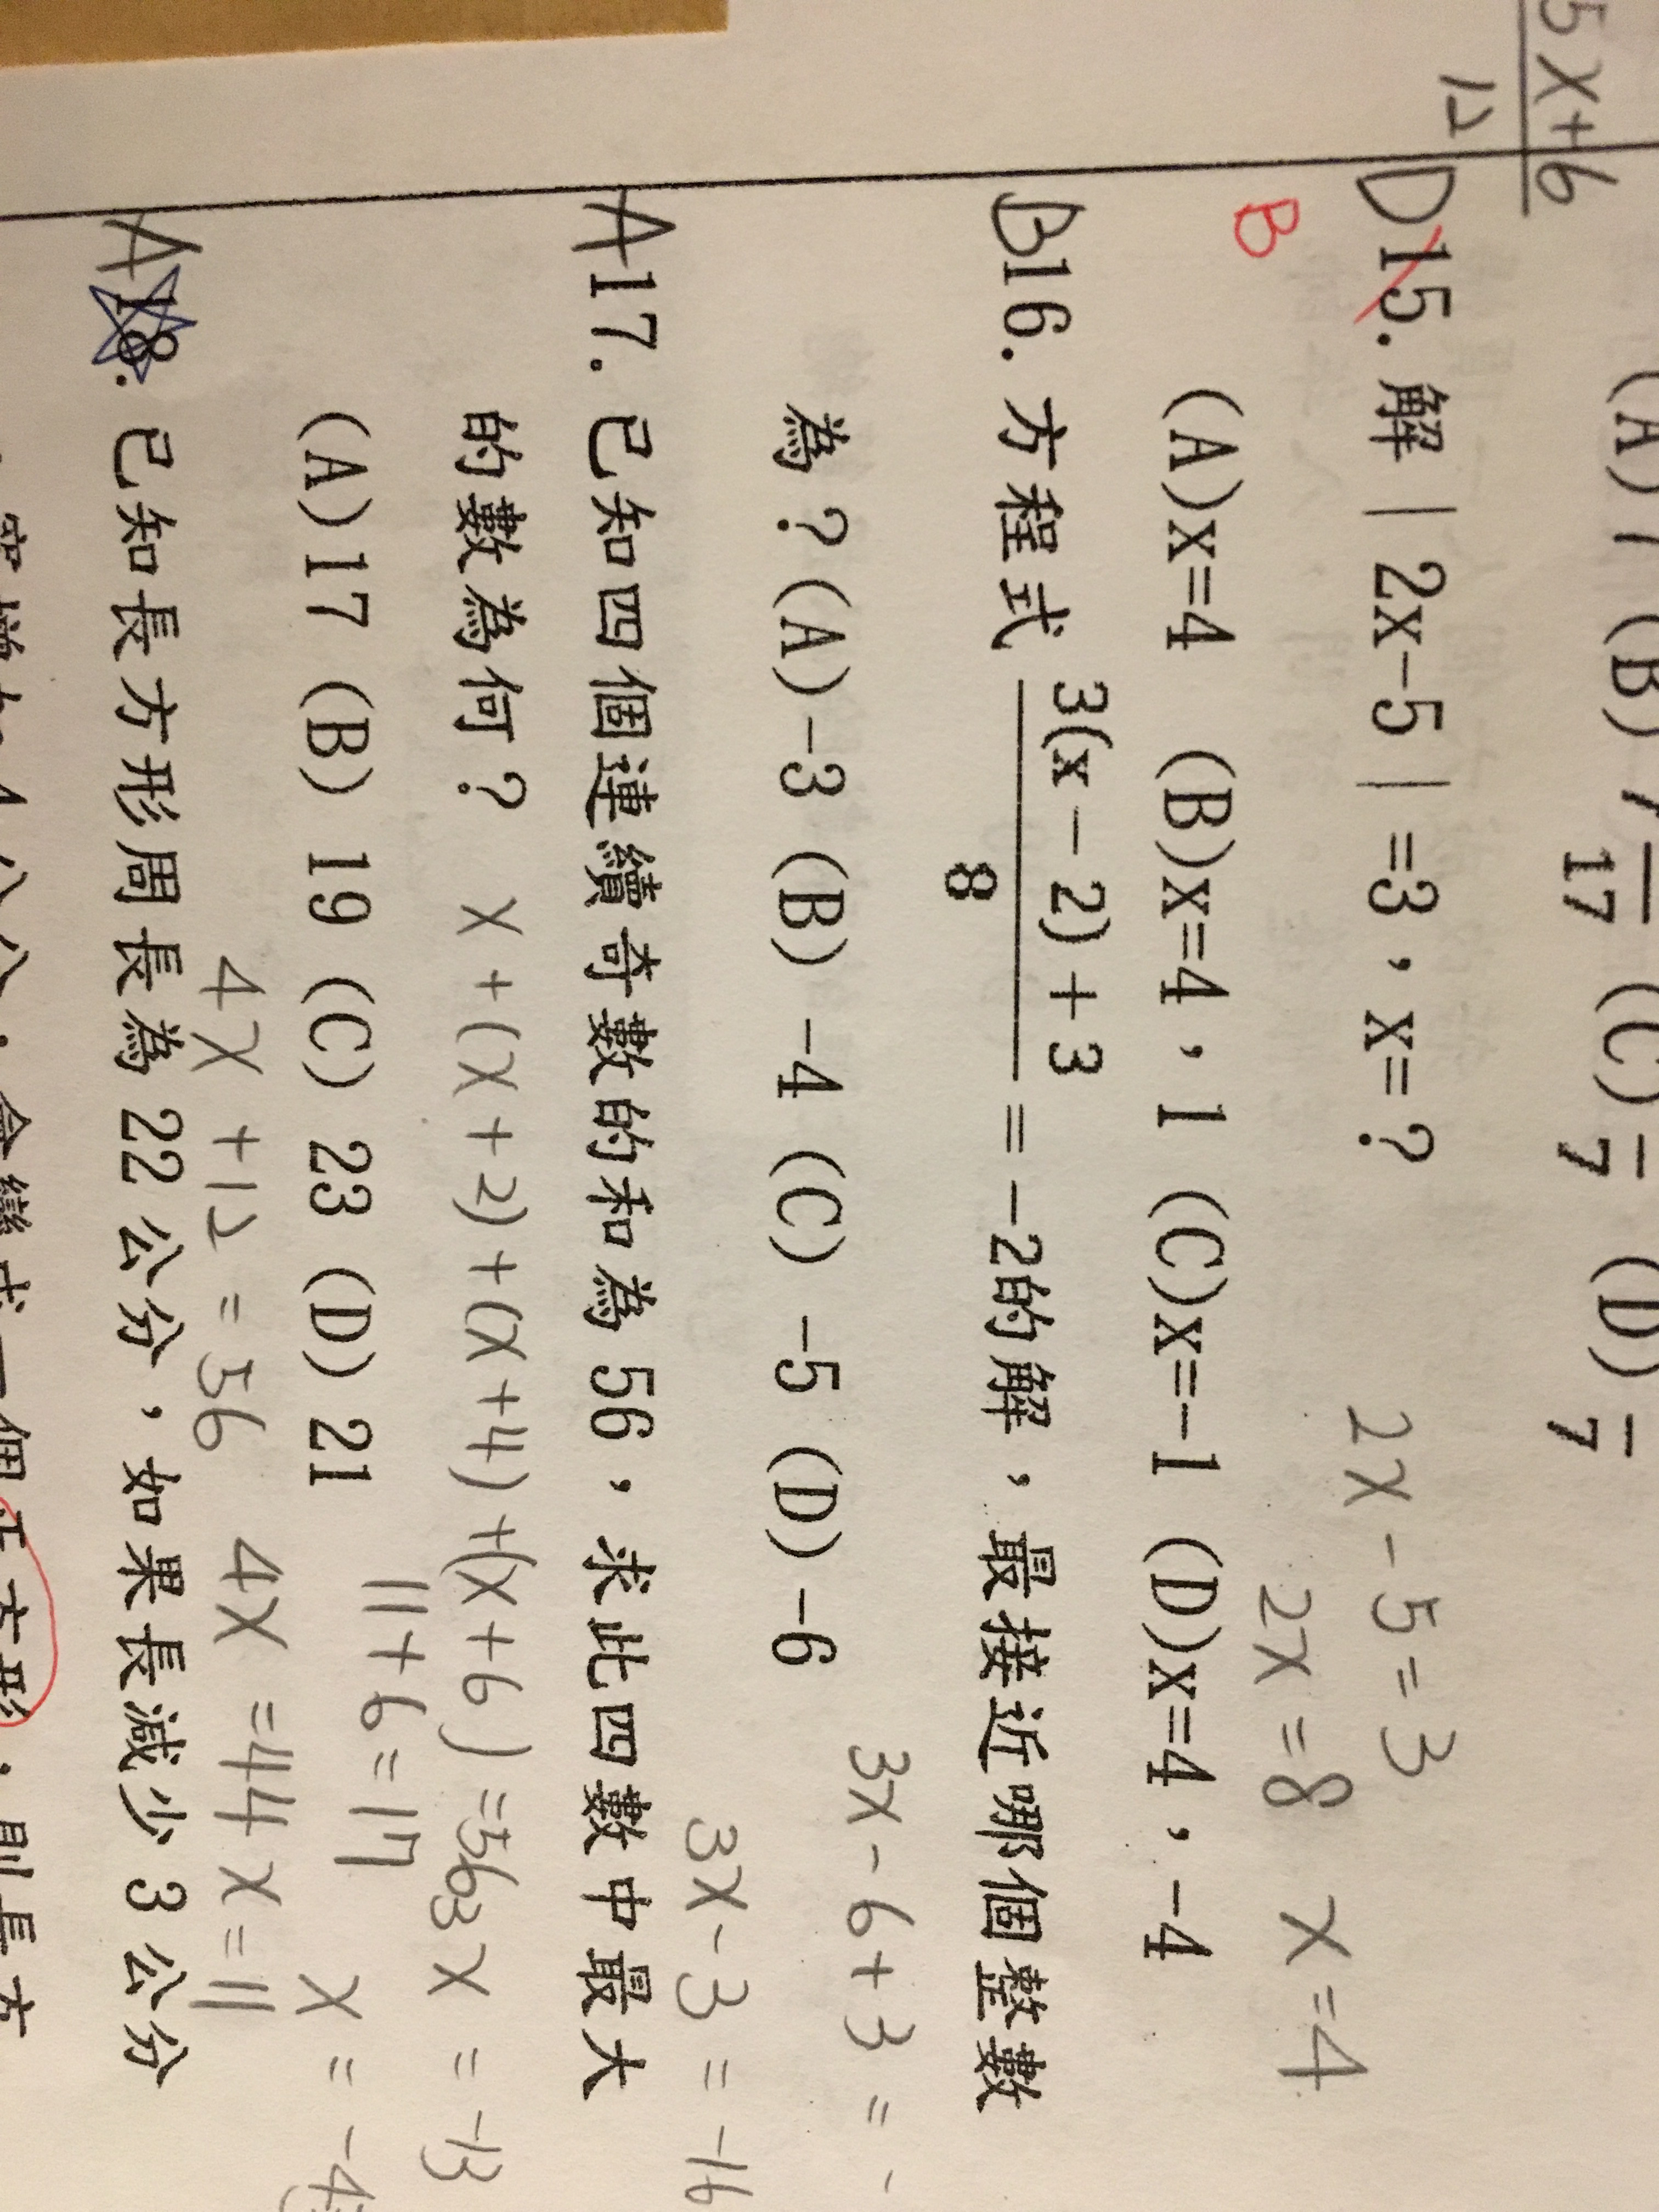 5x+6
12
(A) (B) 17 (C) 7 (D) 7
D15. 解|2x-5|=3,x=?
2x-5=3
2x=8 x=4
B
(A)x=4 (B)x=4,1 (C)x=-1 (D)x=4,-4
B16. 方程式 3(x-2)+3
8
=-2的解,最接近哪個整數
為?(A)-3 (B) -4 (C) -5 (D)-6
3x-6+3=-
3x-3=-16
3x=-13
x=-4
A17. 已知四個連續奇數的和為56,求此四數中最大
的數為何? x+(x+2)+(x+4)+(x+6)=56
11+6=17
(A)17 (B) 19 (C) 23 (D) 21
4x+12=56 4x=44 x=11
A18. 已知長方形周長為22公分,如果長減少3公分
正方形